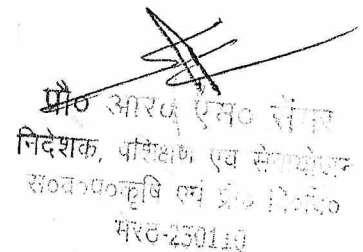 प्रौ० आर० एम० सेंगर
निदेशक, प्रशिक्षण एवं सेवायोजन
स०व०प०कृषि एवं प्रौ० वि०वि०
मेरठ-250110